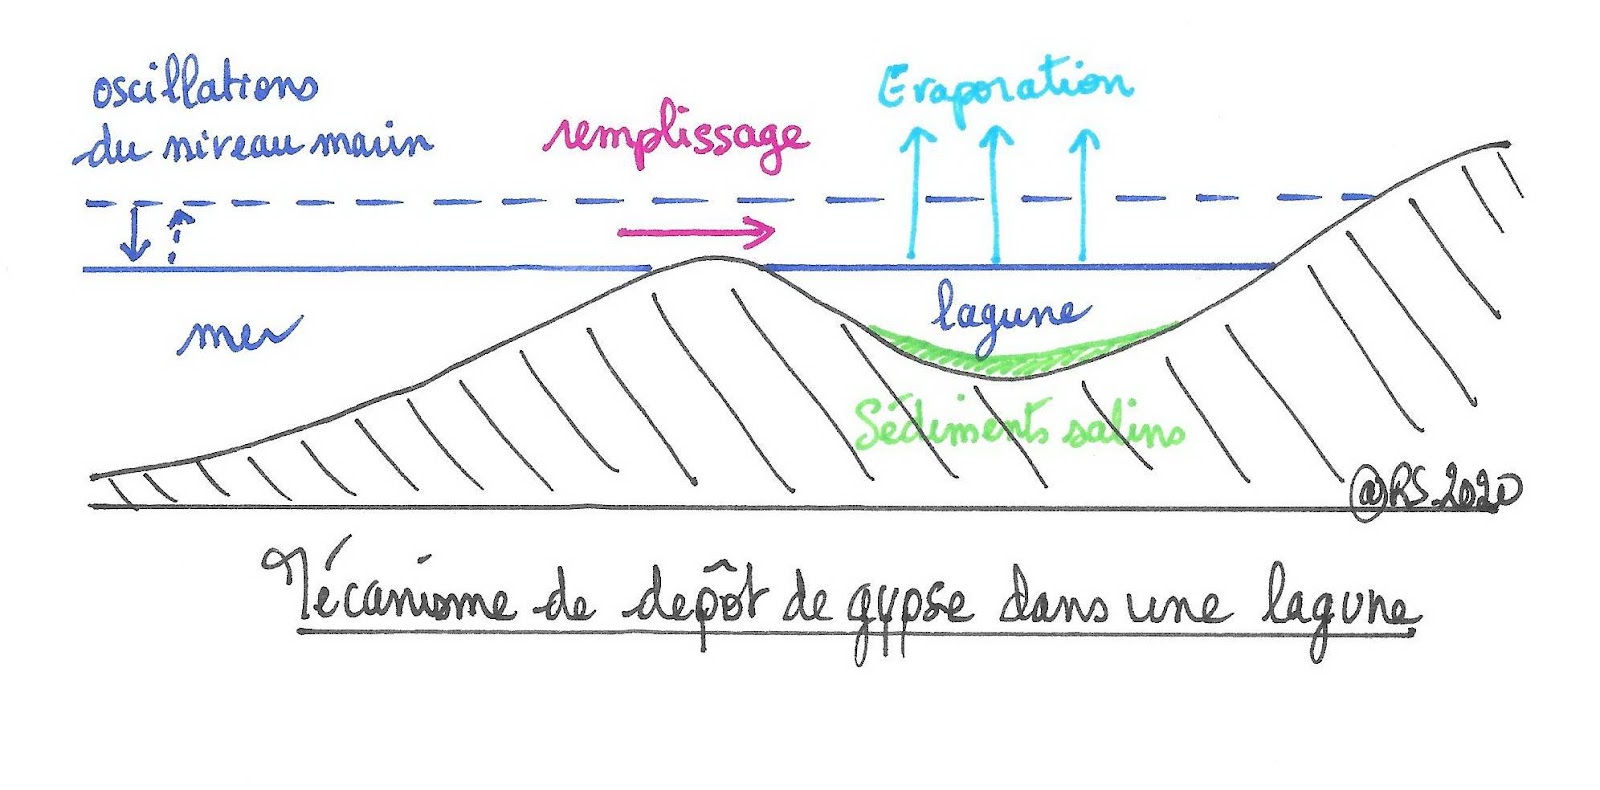 oscillations
du niveau marin
remplissage
Evaporation
mer
lagune
Sédiments salins
@RS.2020
Mécanisme de depôt de gypse dans une lagune